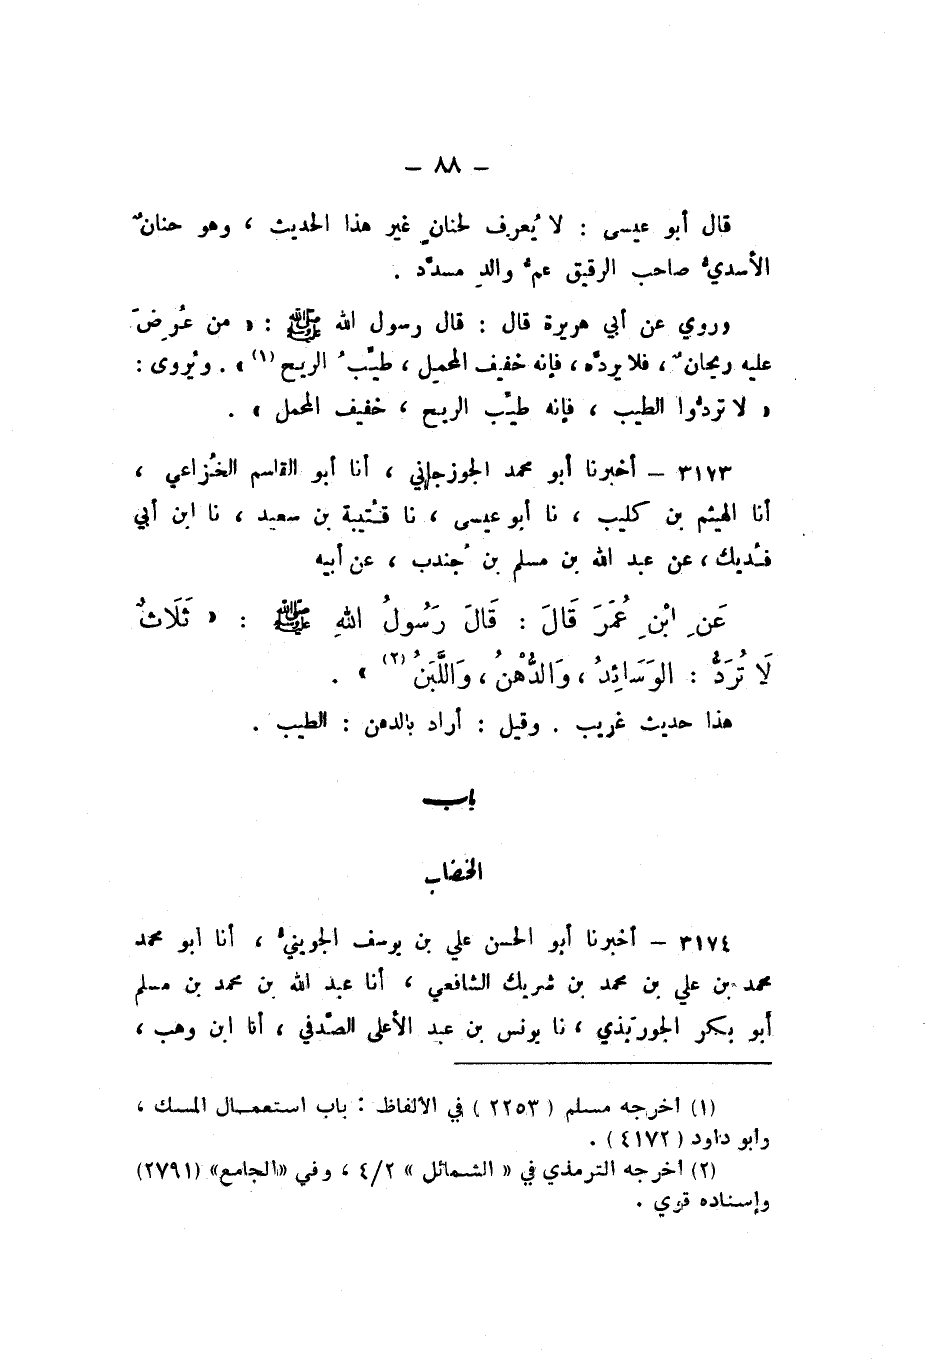 – ٨٨ –
قال أبو عيسى : لا يُعرف لحنانٍ غير هذا الحديث ، وهو حنانٌ
الأسديُّ صاحب الرقيق عمُّ والدِ مسدَّد .
وروي عن أبي هريرة قال : قال رسول الله ﷺ : « من عُرِضَ
عليه ريحانٌ ، فلا يردَّه ، فإنه خفيف المحمِل ، طيِّبُ الريح (١) » . ويُروى :
« لا تردُّوا الطيب ، فإنه طيِّب الريح ، خفيف المحمل » .
٣١٧٣ – أخبرنا أبو محمد الجوزجاني ، أنا أبو القاسم الخُزاعي ،
أنا الهيثم بن كليب ، نا أبو عيسى ، نا قُتيبة بن سعيد ، نا ابن أبي
فُديك ، عن عبد الله بن مسلم بن جُندب ، عن أبيه
عَنِ ابْنِ عُمَرَ قَالَ : قَالَ رَسُولُ اللهِ ﷺ : « ثَلَاثٌ
لَا تُرَدُّ : الوَسَائِدُ ، وَالدُّهْنُ ، وَاللَّبَنُ (٢) » .
هذا حديث غريب . وقيل : أراد بالدهن : الطيب .
باب
الخضاب
٣١٧٤ – أخبرنا أبو الحسن علي بن يوسف الجوينيُّ ، أنا أبو محمد
محمد بن علي بن محمد بن شريك الشافعي ، أنا عبد الله بن محمد بن مسلم
أبو بكر الجورَبَذي ، نا يونس بن عبد الأعلى الصَّدفي ، أنا ابن وهب ،
(١) أخرجه مسلم ( ٢٢٥٣ ) في الألفاظ : باب استعمال المسك ،
وأبو داود ( ٤١٧٢ ) .
(٢) أخرجه الترمذي في « الشمائل » ٤/٢ ، وفي «الجامع» (٢٧٩١)
وإسناده قوي .